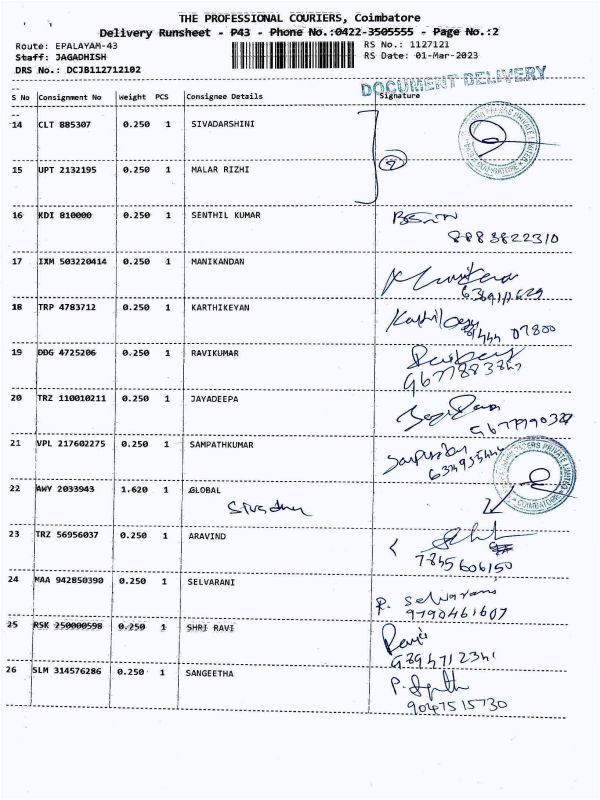 THE PROFESSIONAL COURIERS, Coimbatore
Delivery Runsheet - P43 - Phone No.:0422-3505555 - Page No.:2
Route: EPALAYAM-43 RS No.: 1127121
Staff: JAGADHISH RS Date: 01-Mar-2023
DRS No.: DCJB112712102
DOCUMENT DELIVERY
S No Consignment No Weight PCS Consignee Details Signature
14 CLT 885307 0.250 1 SIVADARSHINI
15 UPT 2132195 0.250 1 MALAR RIZHI
16 KDI 810000 0.250 1 SENTHIL KUMAR
8883822310
17 IXM 503220414 0.250 1 MANIKANDAN
18 TRP 4783712 0.250 1 KARTHIKEYAN
07800
19 DDG 4725206 0.250 1 RAVIKUMAR
20 TRZ 110010211 0.250 1 JAYADEEPA
21 VPL 217602275 0.250 1 SAMPATHKUMAR
22 AWY 2033943 1.620 1 GLOBAL
COIMBATORE
23 TRZ 56956037 0.250 1 ARAVIND
7845606150
24 MAA 942850390 0.250 1 SELVARANI
R. Selvarani
9790461607
25 RSK 250000598 0.250 1 SHRI RAVI
Ravi
26 SLM 314576286 0.250 1 SANGEETHA
9047515730